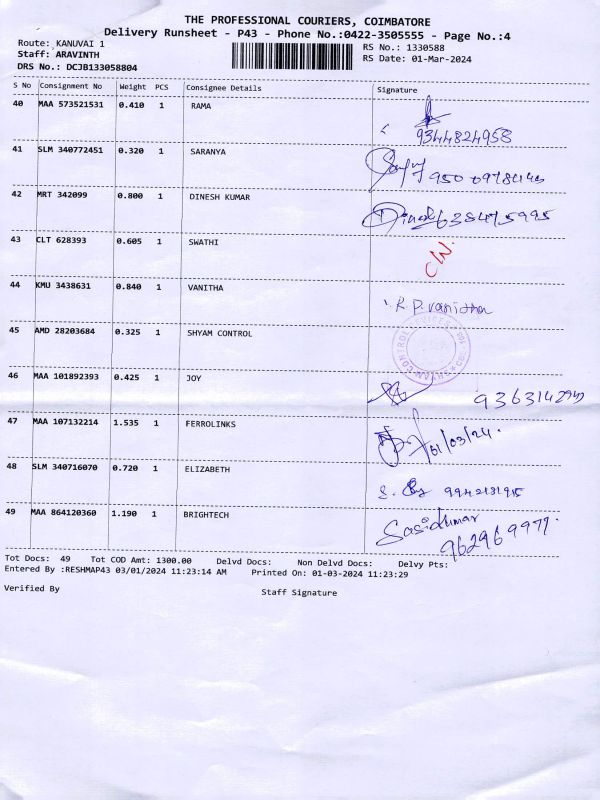 THE PROFESSIONAL COURIERS, COIMBATORE
Delivery Runsheet - P43 - Phone No.:0422-3505555 - Page No.:4
Route: KANUVAI 1 RS No.: 1330588
Staff: ARAVINTH RS Date: 01-Mar-2024
DRS No.: DCJB133058804
S No Consignment No Weight PCS Consignee Details Signature
40 MAA 573521531 0.410 1 RAMA
9344824958
41 SLM 340772451 0.320 1 SARANYA
42 MRT 342099 0.800 1 DINESH KUMAR Dinesh
43 CLT 628393 0.605 1 SWATHI
44 KMU 3438631 0.840 1 VANITHA R.P.vanitha
45 AMD 28203684 0.325 1 SHYAM CONTROL
46 MAA 101892393 0.425 1 JOY
47 MAA 107132214 1.535 1 FERROLINKS 01/03/24.
48 SLM 340716070 0.720 1 ELIZABETH
49 MAA 864120360 1.190 1 BRIGHTECH Sasidkumar
962969977.
Tot Docs: 49 Tot COD Amt: 1300.00 Delvd Docs: Non Delvd Docs: Delvy Pts:
Entered By :RESHMAP43 03/01/2024 11:23:14 AM Printed On: 01-03-2024 11:23:29
Verified By Staff Signature